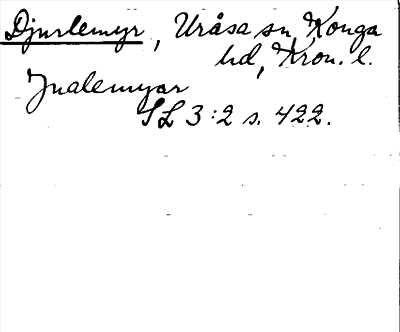 Djurlemyr, Uråsa sn, Konga
hd, Kron. l.
Jualemyar
SL 3:2 s. 422.